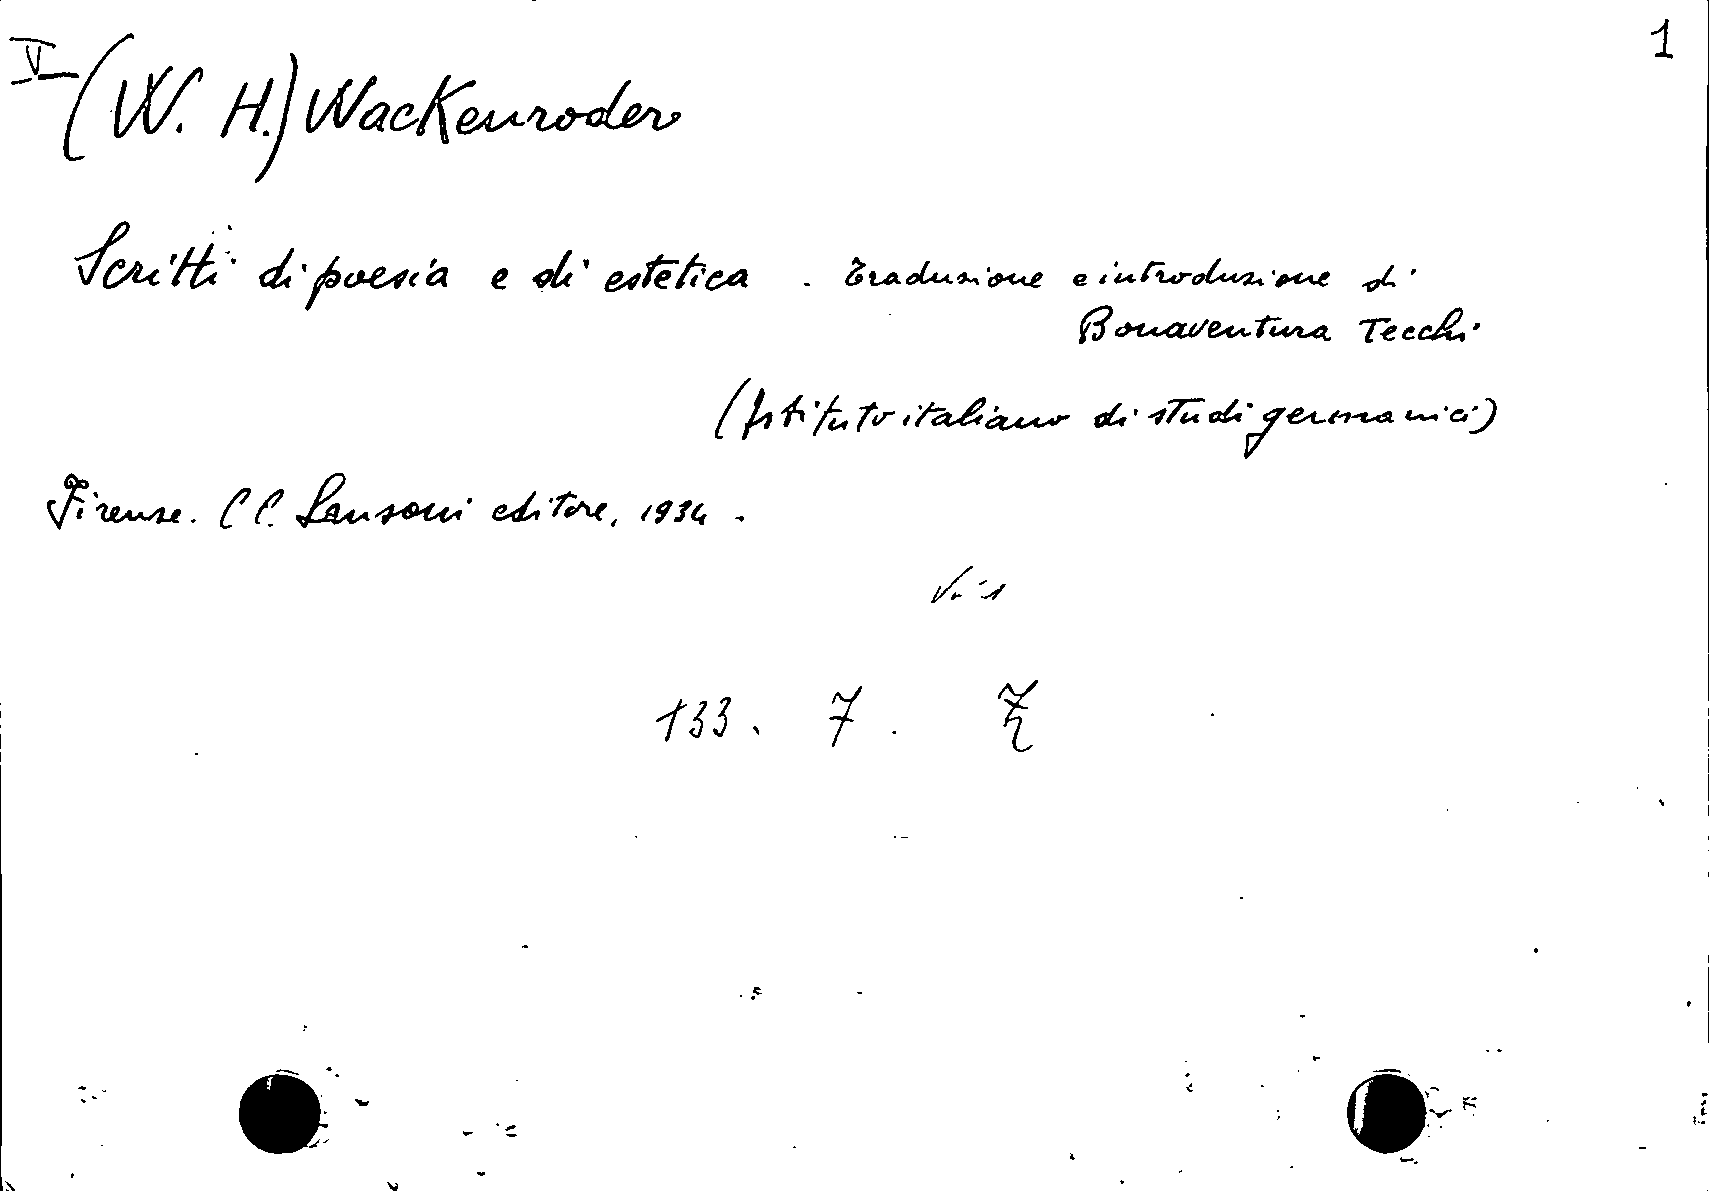 1
V (W. H.) Wackenroder
Scritti di poesia e di estetica. Traduzione e introduzione di
Bonaventura Tecchi
(Istituto italiano di studi germanici)
Firenze. Sansoni editore, 1934.
133. 7.